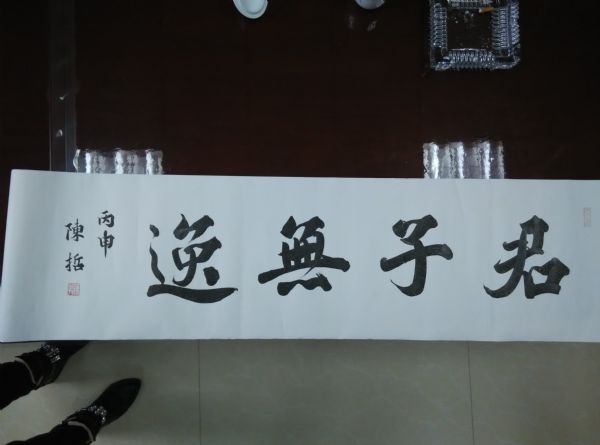 君子無逸
丙申
陳哲